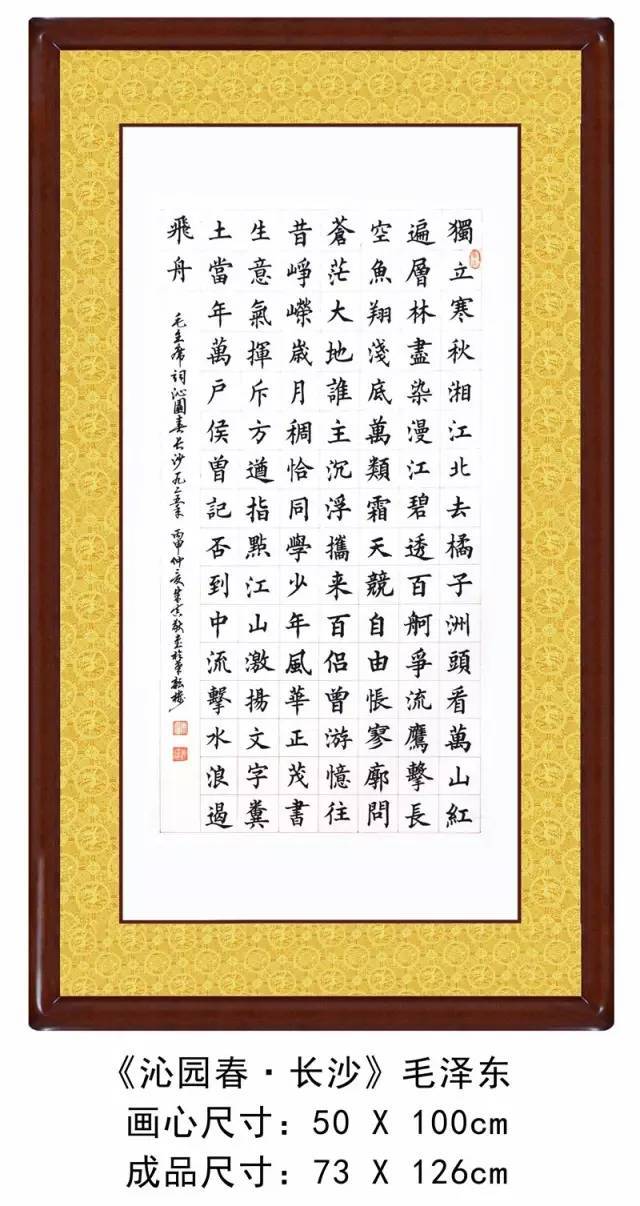 獨立寒秋湘江北去橘子洲頭看萬山紅
遍層林盡染漫江碧透百舸爭流鷹擊長
空魚翔淺底萬類霜天競自由悵寥廓問
蒼茫大地誰主沉浮攜来百侶曾游憶往
昔崢嶸歲月稠恰同學少年風華正茂書
生意氣揮斥方遒指點江山激揚文字糞
土當年萬戶侯曾記否到中流擊水浪遏
飛舟
毛主席詞沁園春長沙 丙申仲夏
《沁园春·长沙》毛泽东
画心尺寸：50 X 100cm
成品尺寸：73 X 126cm